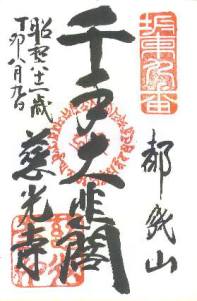 坂東第九番
都幾山
千手大悲閣
昭和六十二歳
丁卯八月九日
慈光寺